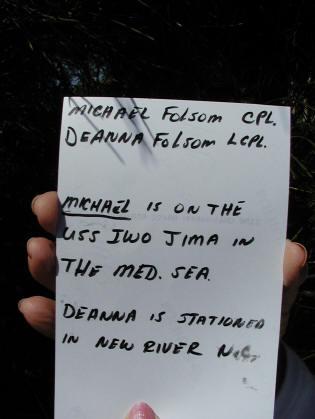 MICHAEL FOLSOM CPL.
DEANNA FOLSOM LCPL.
MICHAEL IS ON THE
USS IWO JIMA IN
THE MED. SEA.
DEANNA IS STATIONED
IN NEW RIVER N.C.